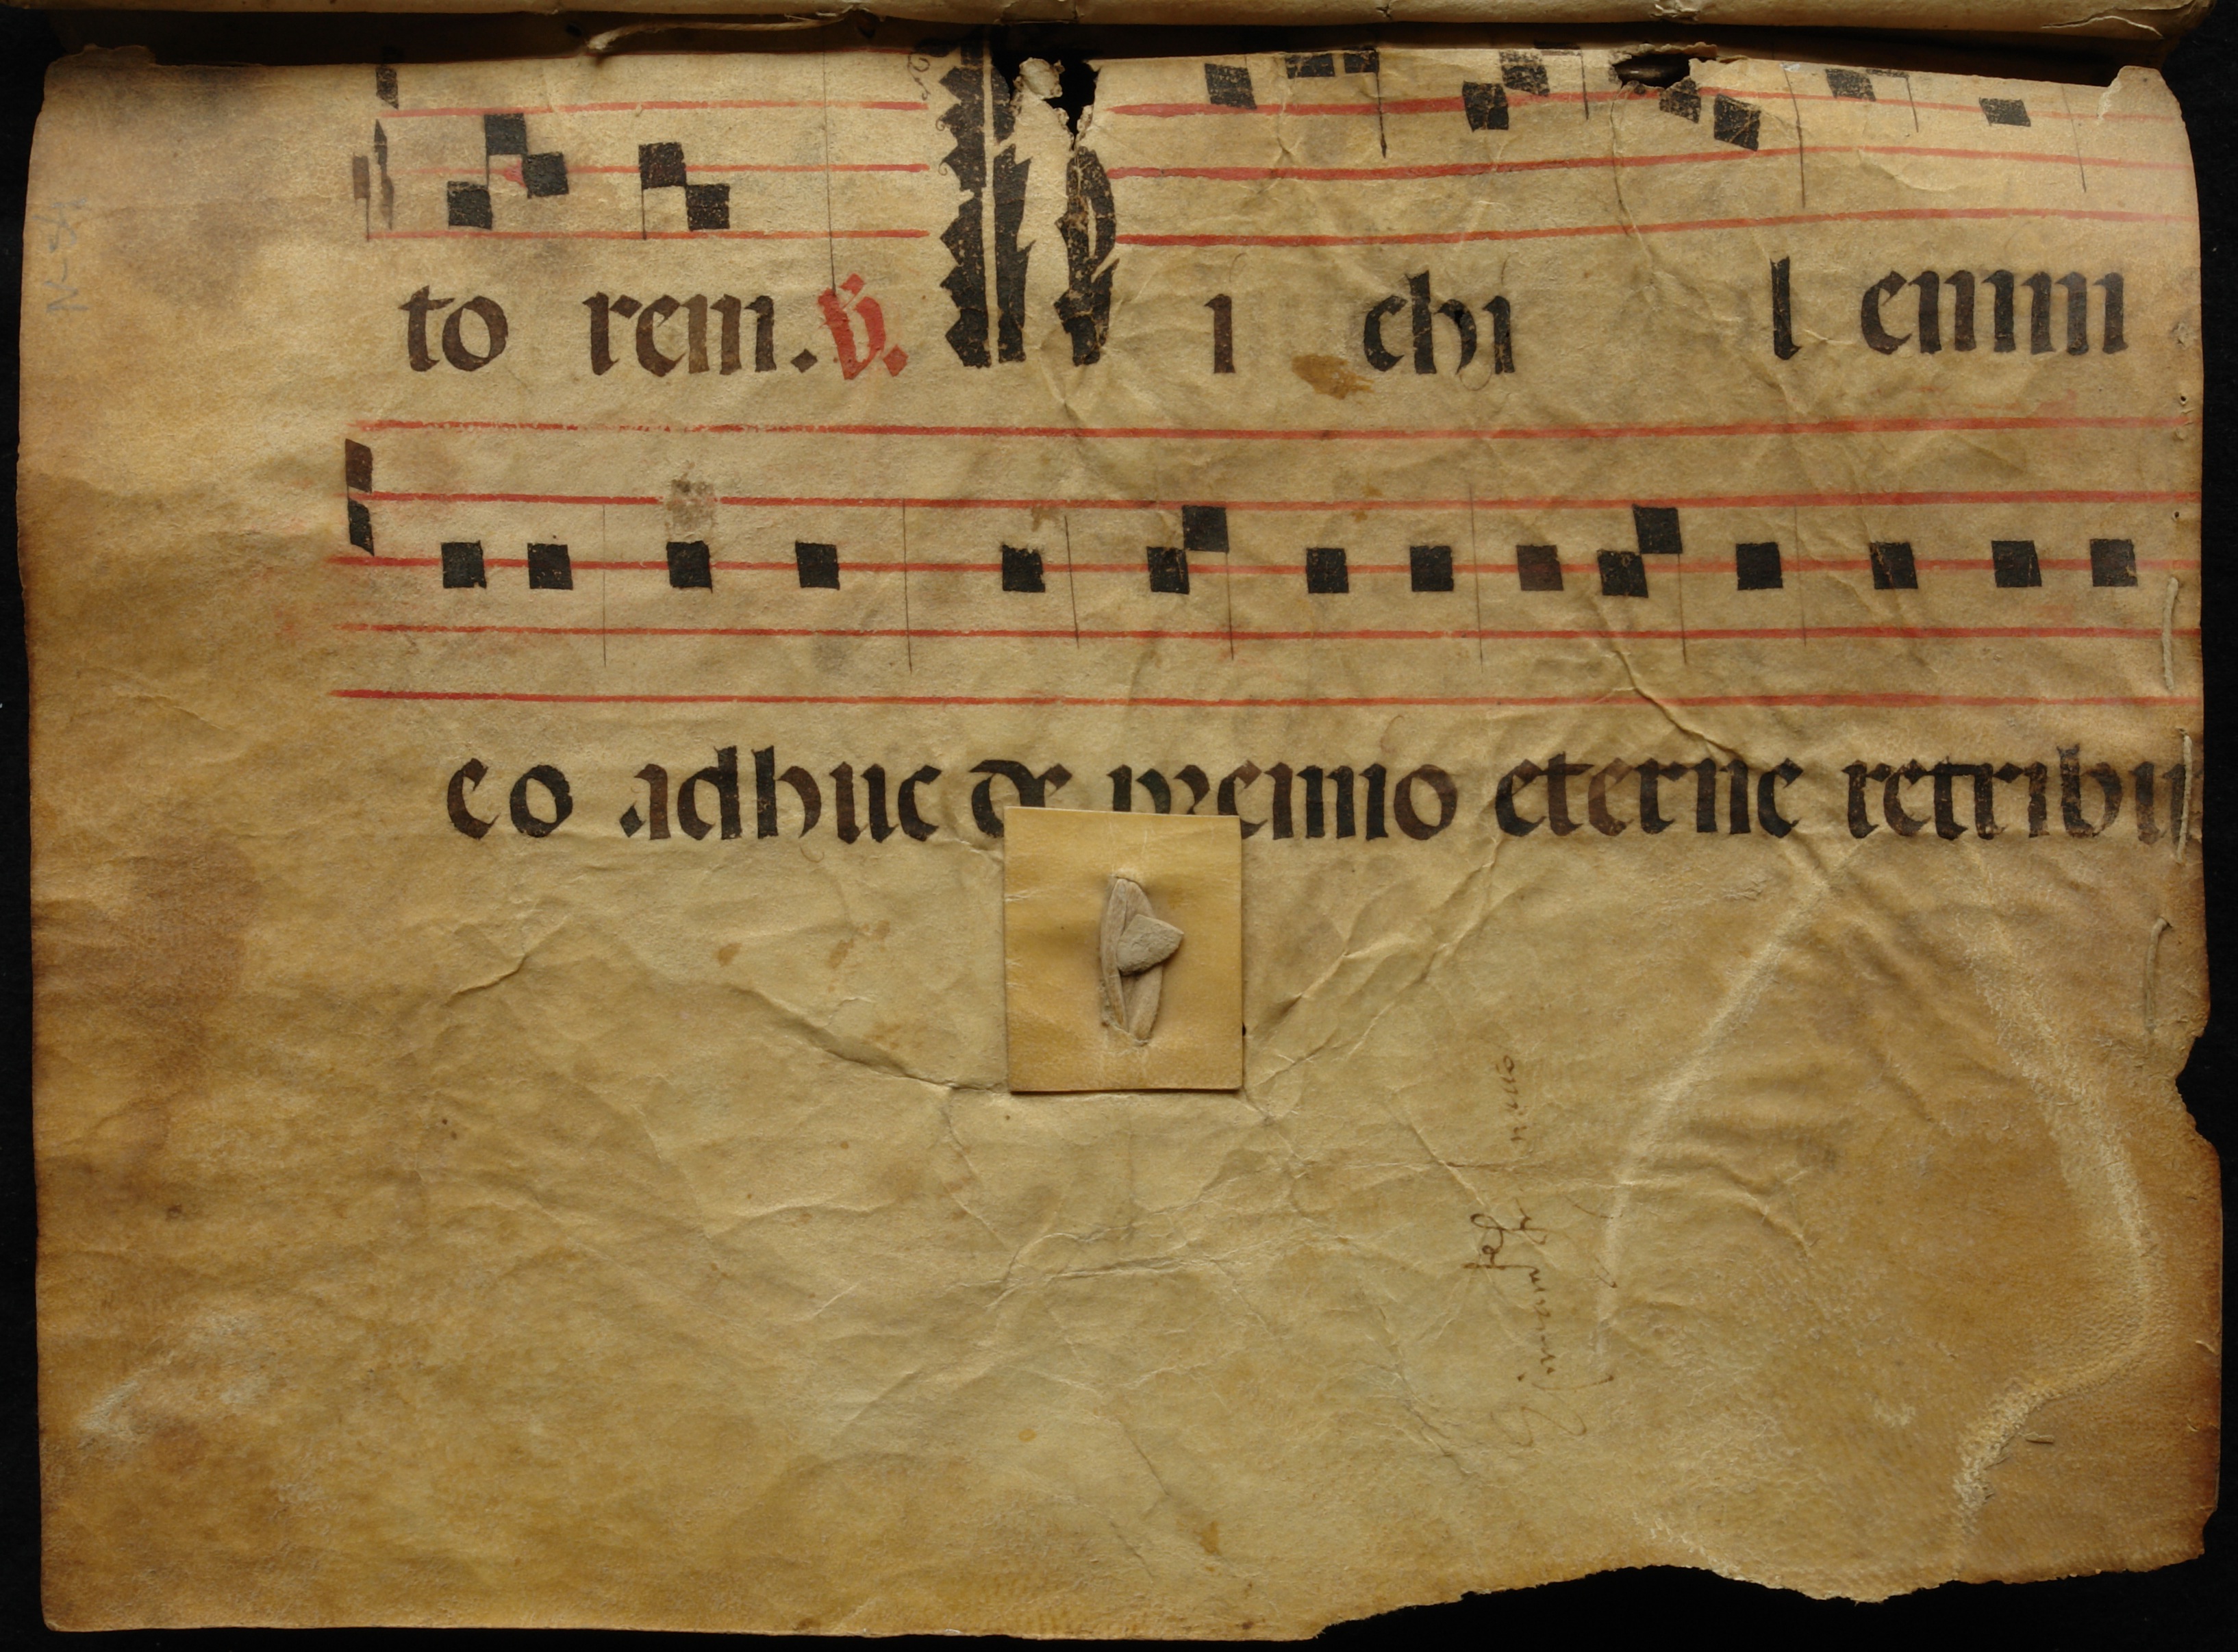 to rem. V. N i chi l enim
eo adhuc de premio eterne retribu